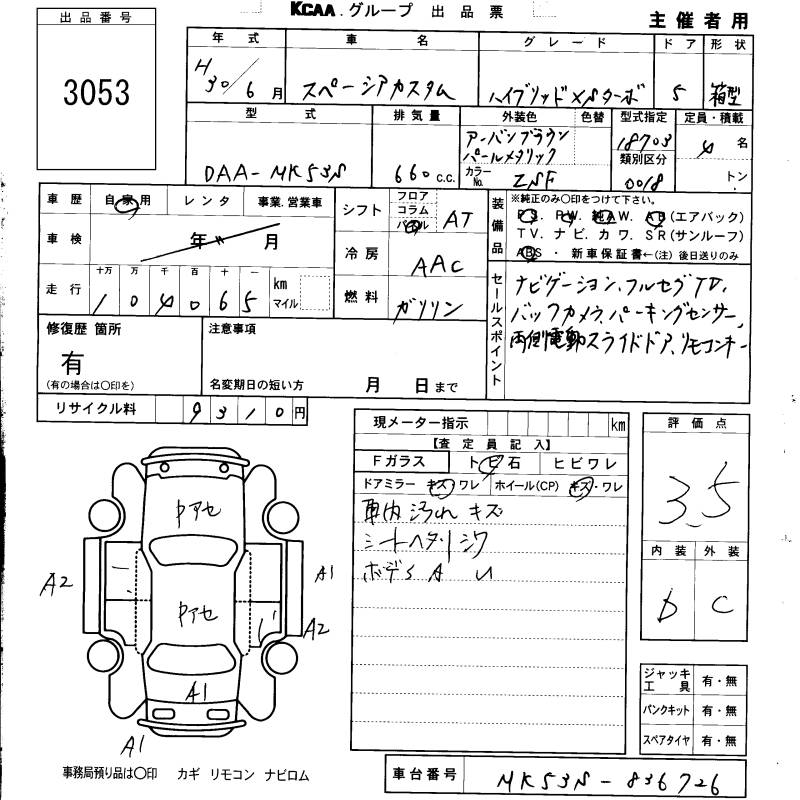 KCAA.グループ 出品票
主催者用
出品番号
3053
年式 車名 グレード ドア 形状
H30/6月 スペーシアカスタム ハイブリッドXSターボ 5 箱型
型式 排気量 外装色 色替 型式指定 定員・積載
DAA-MK53S 660c.c. アーバンブラウン 18703 4名
パールメタリック 類別区分
カラーNo. ZSF 0018 トン
車歴 自家用 レンタ 事業.営業車
シフト フロア コラム パネル AT
装備品 ※純正のみ〇印をつけて下さい。
P.S. P.W. 純A.W. AB(エアバック)
TV.ナビ.カワ.SR(サンルーフ)
ABS・新車保証書←(注)後日送りのみ
車検 年 月
冷房 AAC
走行 十万 万 千 百 十 一 km マイル
104065
燃料 ガソリン
セールスポイント
ナビゲーション、フルセグTV、
バックカメラ、パーキングセンサー、
両側電動スライドドア、リモコンキー
修復歴 箇所 注意事項
有
(有の場合は〇印を) 名変期日の短い方 月 日まで
リサイクル料 9310円
現メーター指示 km
【査定員記入】
Fガラス トビ石 ヒビワレ
ドアミラー キズ・ワレ ホイール(CP) キズ・ワレ
車内汚れ キズ
シートヘタリ シワ
ボデS A U
評価点
3.5
内装 外装
D C
中アセ
A2 A1
中アセ
A2
A1
A1
ジャッキ工具 有・無
パンクキット 有・無
スペアタイヤ 有・無
事務局預り品は〇印 カギ リモコン ナビロム
車台番号 MK53S-836726